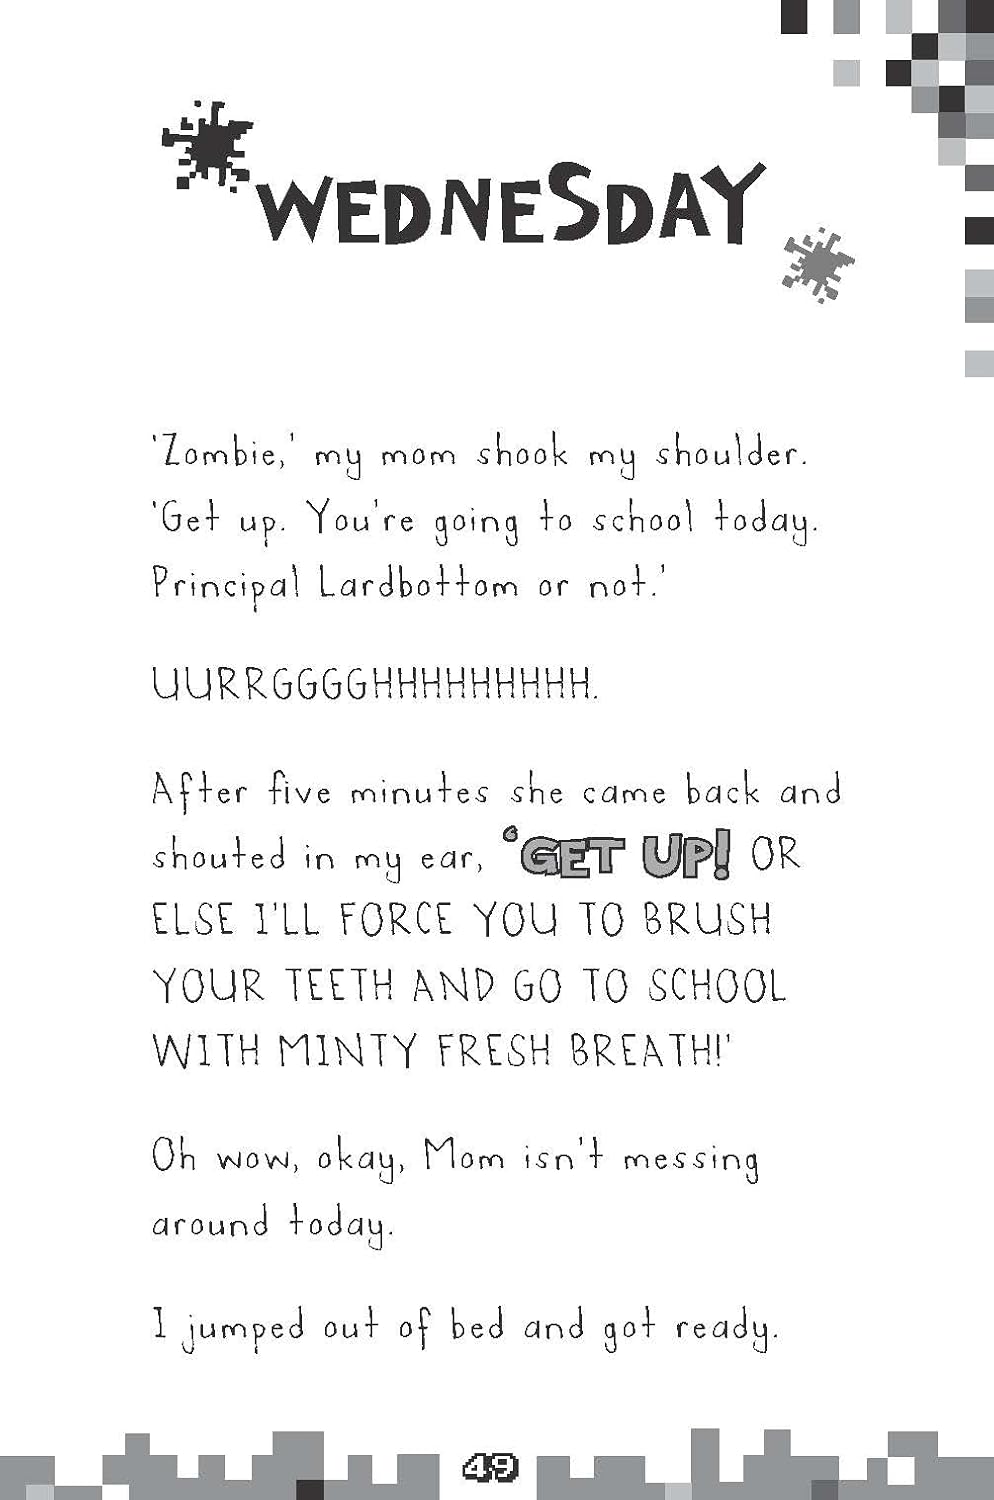 WEDNESDAY
'Zombie,' my mom shook my shoulder.
'Get up. You're going to school today.
Principal Lardbottom or not.'
UURRGGGGHHHHHHHHH.
After five minutes she came back and
shouted in my ear, 'GET UP! OR
ELSE I'LL FORCE YOU TO BRUSH
YOUR TEETH AND GO TO SCHOOL
WITH MINTY FRESH BREATH!'
Oh wow, okay, Mom isn't messing
around today.
I jumped out of bed and got ready.
49